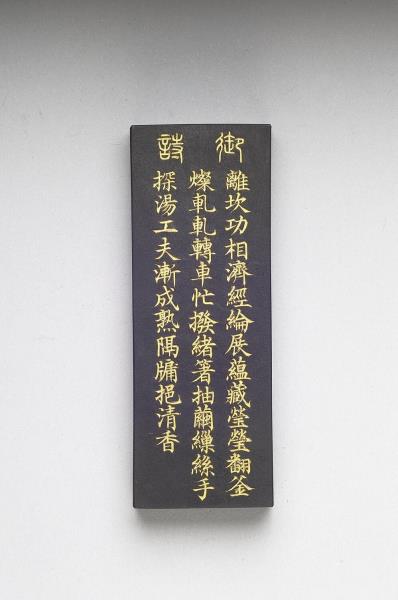 御詩
離坎功相濟經綸展蘊藏瑩瑩翻釜
燦軋軋轉車忙撥緒箸抽繭繅絲手
探湯工夫漸成熟隔牖挹清香